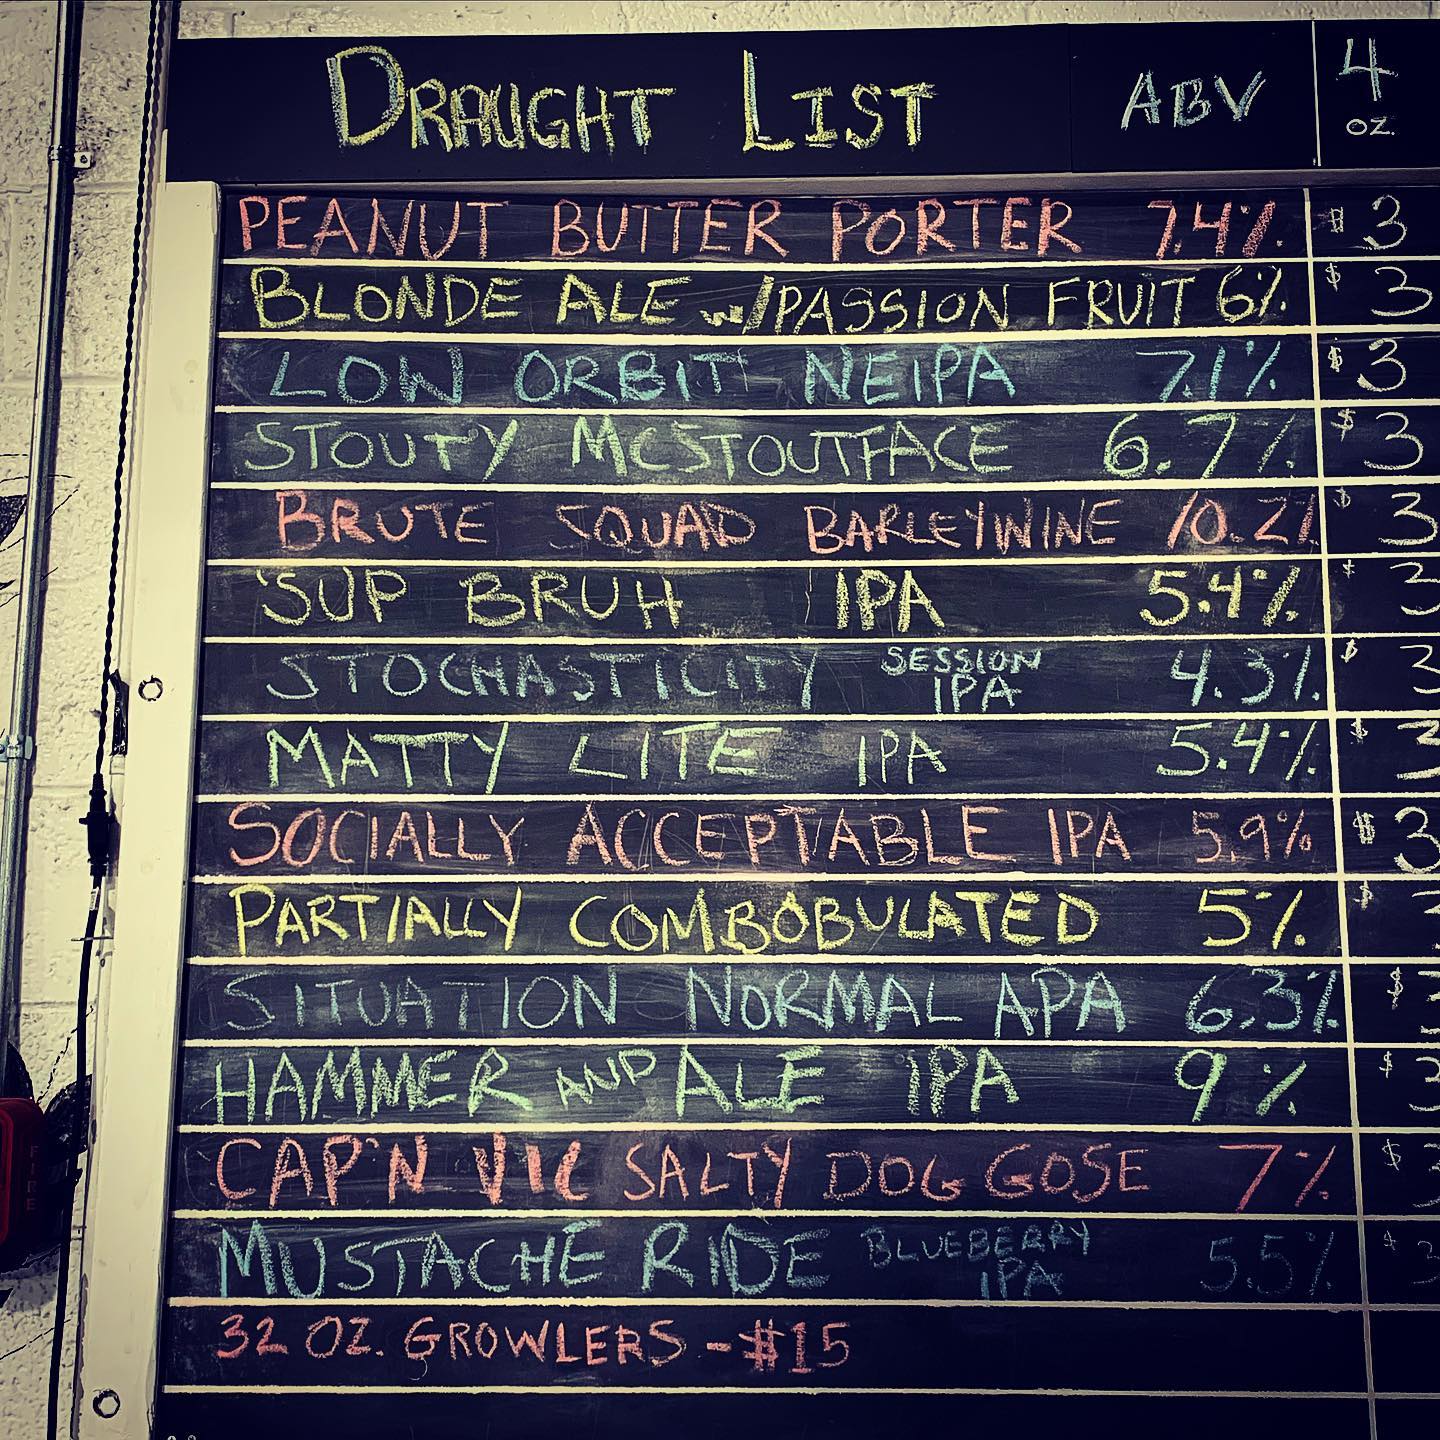 DRAUGHT LIST ABV 4 OZ.
PEANUT BUTTER PORTER 7.4% $ 3
BLONDE ALE w/PASSION FRUIT 6% $ 3
LOW ORBIT NEIPA 7.1% $ 3
STOUTY MCSTOUTFACE 6.7% $ 3
BRUTE SQUAD BARLEYWINE 10.2% $ 3
'SUP BRUH IPA 5.4% $ 3
STOCHASTICITY SESSION IPA 4.3% $ 3
MATTY LITE IPA 5.4% $ 3
SOCIALLY ACCEPTABLE IPA 5.9% $ 3
PARTIALLY COMBOBULATED 5% $
SITUATION NORMAL APA 6.3% $
HAMMER AND ALE IPA 9% $ 3
CAP'N VIC SALTY DOG GOSE 7% $ 3
MUSTACHE RIDE BLUEBERRY IPA 5.5% $ 3
32 OZ. GROWLERS - $15
FIRE